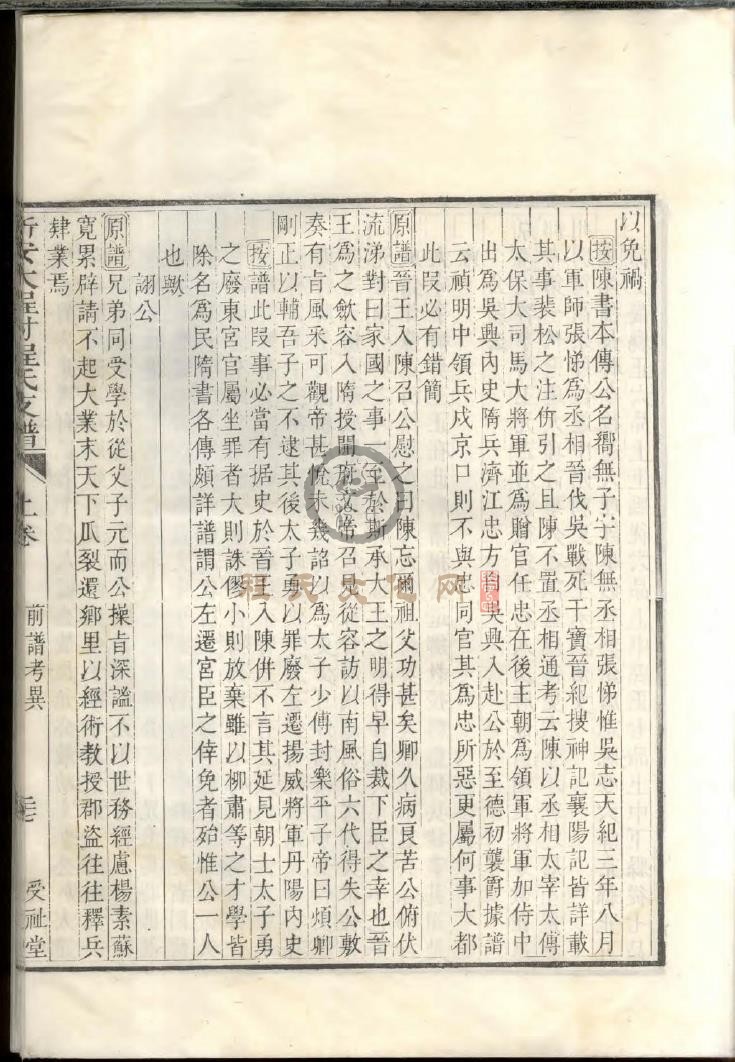 以免禍
按陳書本傳公名嚮無子字陳無丞相張悌惟吳志天紀三年八月
以軍師張悌為丞相晉伐吳戰死干寶晉紀搜神記襄陽記皆詳載
其事裴松之注俻引之且陳不置丞相通考云陳以丞相太宰太傅
太保大司馬大將軍並為贈官任忠在後主朝為領軍將軍加侍中
出為吳興內史隋兵濟江忠方自吳興入赴公於至德初襲爵據譜
云禎明中領兵戍京口則不與忠同官其為忠所惡更屬何事大都
此叚必有錯簡
原譜晉王入陳召公慰之曰陳忘爾祖父功甚矣卿久病良苦公俯伏
流涕對曰家國之事一至於斯承大王之明得早自裁下臣之幸也晉
王為之歛容入隋授開府文帝召從容訪以南風俗六代得失公敷
奏有㫖風采可觀帝甚悅未幾詔以為太子少傅封樂平子帝曰煩卿
剛正以輔吾子之不逮其後太子勇以罪廢左遷揚威將軍丹陽內史
按譜此叚事必當有据史於晉王入陳併不言其延見朝士太子勇
之廢東宮官屬坐罪者大則誅僇小則放棄雖以柳肅等之才學皆
除名為民隋書各傳頗詳譜謂公左遷宮臣之倖免者殆惟公一人
也歟
詡公
原譜兄弟同受學於從父子元而公操㫖深謐不以世務經慮楊素蘇
寬累辟請不起大業末天下瓜裂還鄉里以經術教授郡盜往往釋兵
肄業焉
新安大程村程氏支譜 上卷 前譜考異 受祉堂
程氏文化网